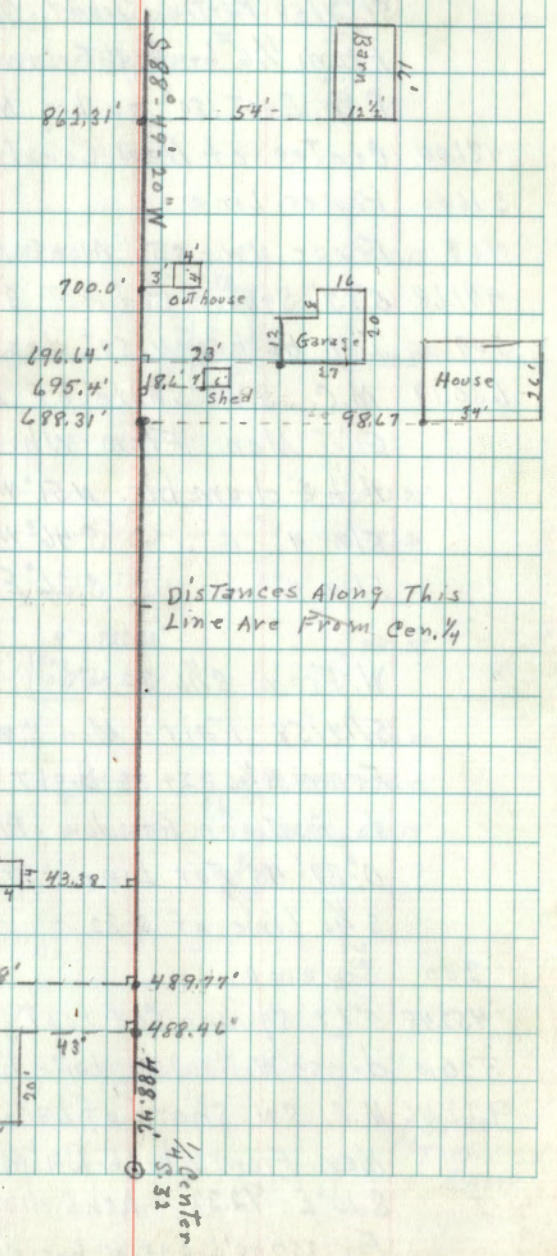 S 88°-49'-20" W
Barn
16'
862.31'
54'
12½'
4'
3'
4'
700.0'
outhouse
16
8
12
Garage
20
27
696.64'
23'
695.4'
18.6'
7
6'
shed
House
26'
34'
688.31'
98.67
Distances Along This
Line Are From Cen. ¼
4
43.38
4
8'
489.77'
488.46"
43'
20'
488.46'
¼ Center
S. 32